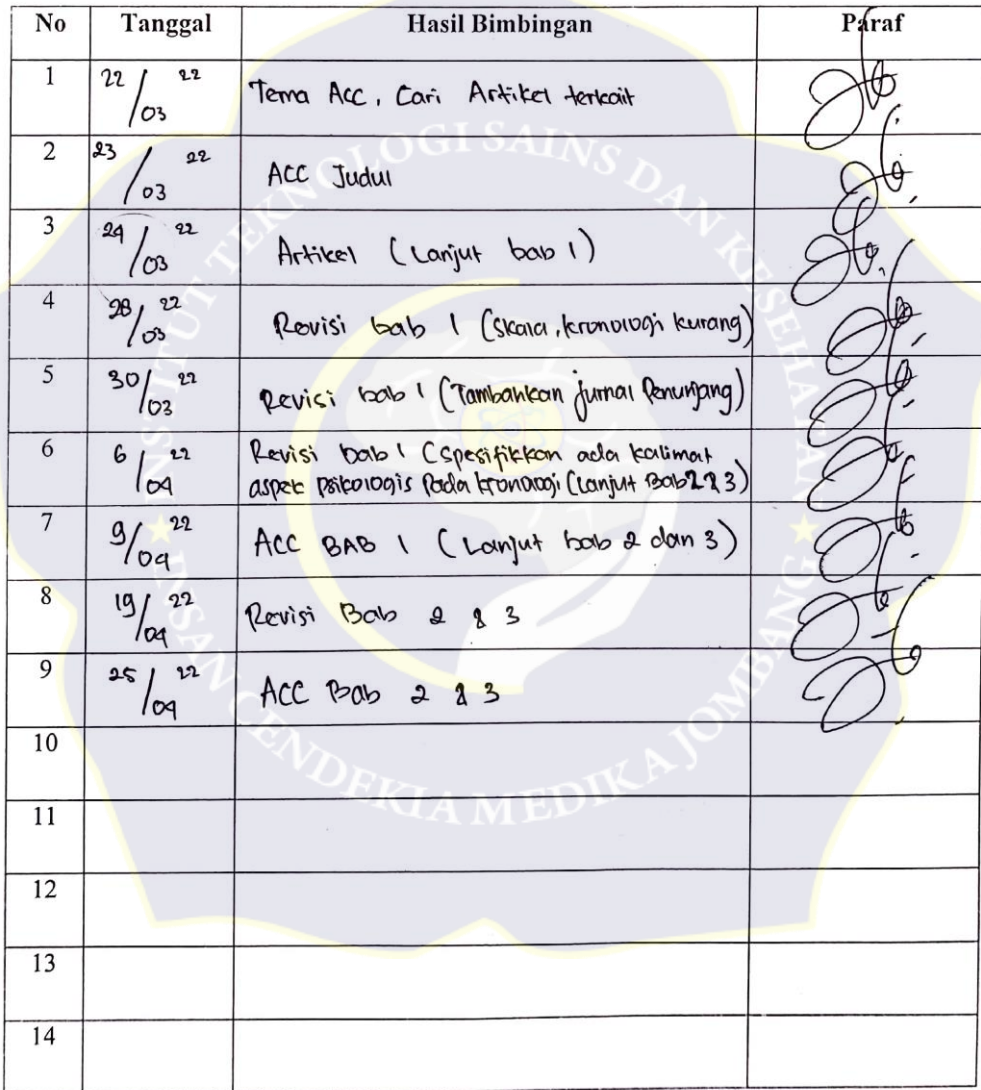 No Tanggal Hasil Bimbingan Paraf
1 22/03 22 Tema Acc, Cari Artikel terkait
2 23/03 22 ACC Judul
3 24/03 22 Artikel (Lanjut bab 1)
4 28/03 22 Revisi bab 1 (Skala, kronologi kurang)
5 30/03 22 Revisi bab 1 (Tambahkan jurnal Penunjang)
6 6/04 22 Revisi bab 1 (spesifikkan ada kalimat
aspek psikologis pada kronologi (Lanjut Bab 2 & 3)
7 9/04 22 ACC BAB 1 (Lanjut bab 2 dan 3)
8 19/04 22 Revisi Bab 2 & 3
9 25/04 22 ACC Bab 2 & 3
10
11
12
13
14
INSTITUT TEKNOLOGI SAINS DAN KESEHATAN
INSAN CENDEKIA MEDIKA JOMBANG